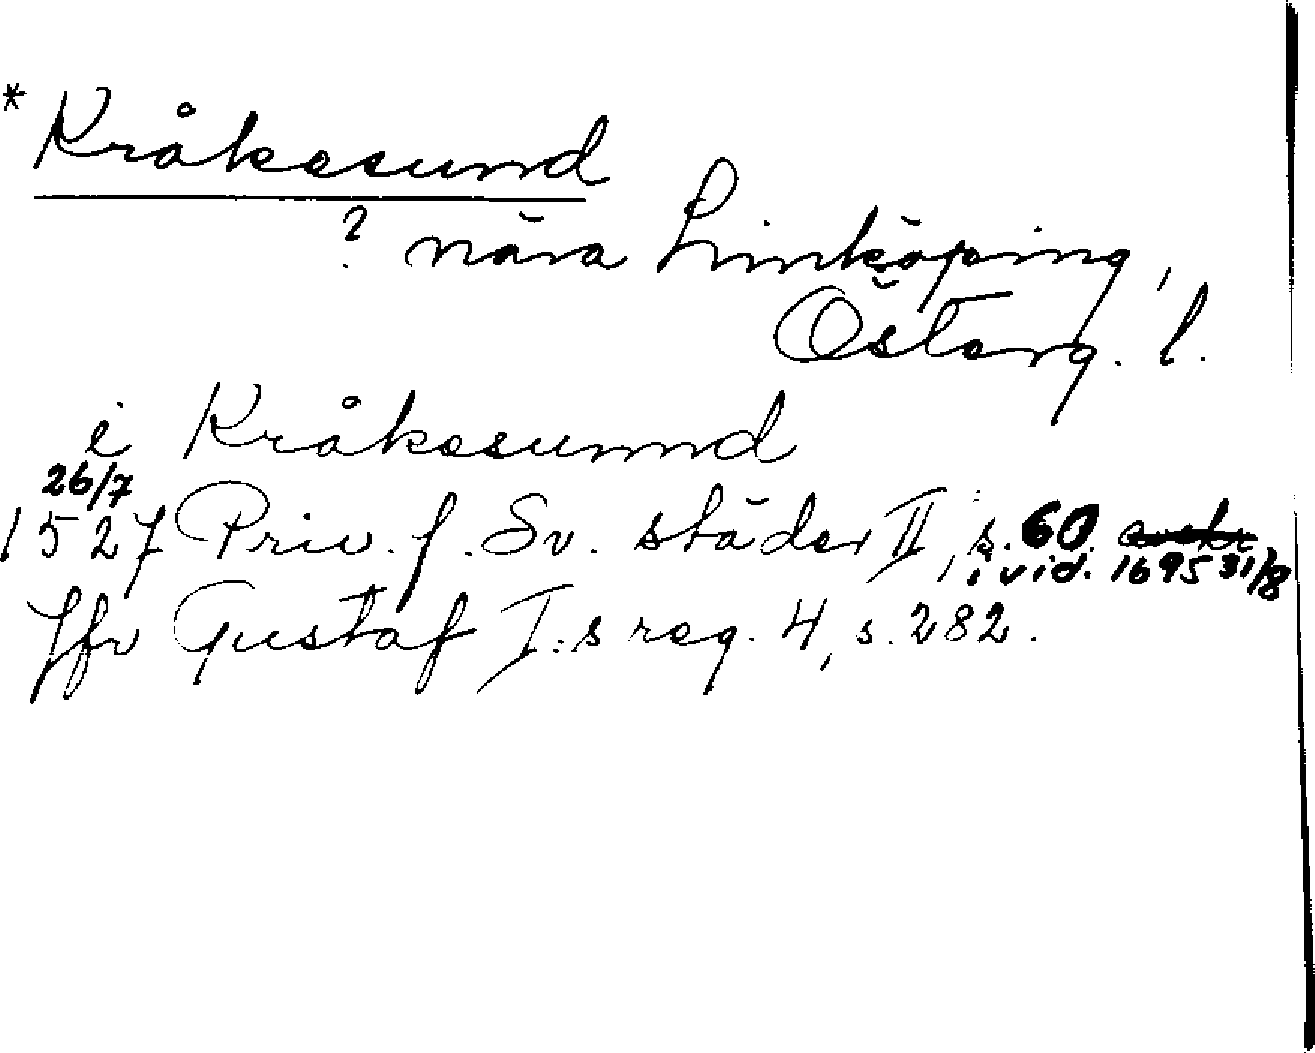 *Kråkesund
? nära Linköping,
Österg. l.
i Kråkesunnd
26/7
1527 Priv. f. Sv. städer II, s. 60
i vid. 1695 31/8
Jfr Gustaf I:s reg. 4, s. 282.